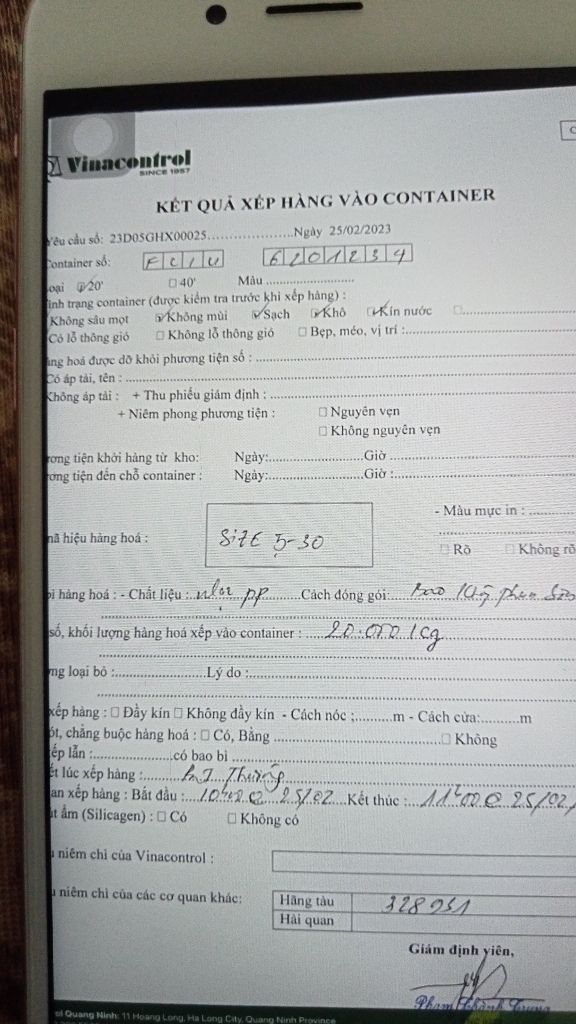 Vinacontrol
SINCE 1957
KẾT QUẢ XẾP HÀNG VÀO CONTAINER
Yêu cầu số: 23D05GHX00025....................Ngày 25/02/2023
Container số: FCIU 6201234
oại ☑20' ☐40' Màu ..........................
ình trạng container (được kiểm tra trước khi xếp hàng) :
Không sâu mọt ☑Không mùi ☑Sạch ☑Khô ☑Kín nước ☐...............
Có lỗ thông gió ☐ Không lỗ thông gió ☐ Bẹp, méo, vị trí :...............
àng hoá được dỡ khỏi phương tiện số : ...............
Có áp tải, tên : ...............
Không áp tải : + Thu phiếu giám định : ...............
+ Niêm phong phương tiện : ☐ Nguyên vẹn
☐ Không nguyên vẹn
ương tiện khởi hàng từ kho: Ngày:....................Giờ ...............
ương tiện đến chỗ container : Ngày:....................Giờ :...............
- Màu mực in : ..........
mã hiệu hàng hoá : SiZE 5-30
☐ Rõ ☐ Không rõ
bì hàng hoá : - Chất liệu : nhựa PP..........Cách đóng gói:.....Bao
số, khối lượng hàng hoá xếp vào container : .....20.000 kg...............
ng loại bỏ :....................Lý do :...............
xếp hàng : ☐ Đầy kín ☐ Không đầy kín - Cách nóc :..........m - Cách cửa:..........m
ót, chằng buộc hàng hoá : ☐ Có, Bằng ...............☐ Không
ếp lẫn :....................có bao bì ...............
ết lúc xếp hàng :..........Thường...............
an xếp hàng : Bắt đầu :..10h00 @ 25/02....Kết thúc :...11h00 @ 25/02
út ẩm (Silicagen) : ☐ Có ☐ Không có
u niêm chì của Vinacontrol :
u niêm chì của các cơ quan khác: Hãng tàu 328931
Hải quan
Giám định viên,
Phạm Thành Trung
ol Quang Ninh: 11 Hoang Long, Ha Long City, Quang Ninh Province